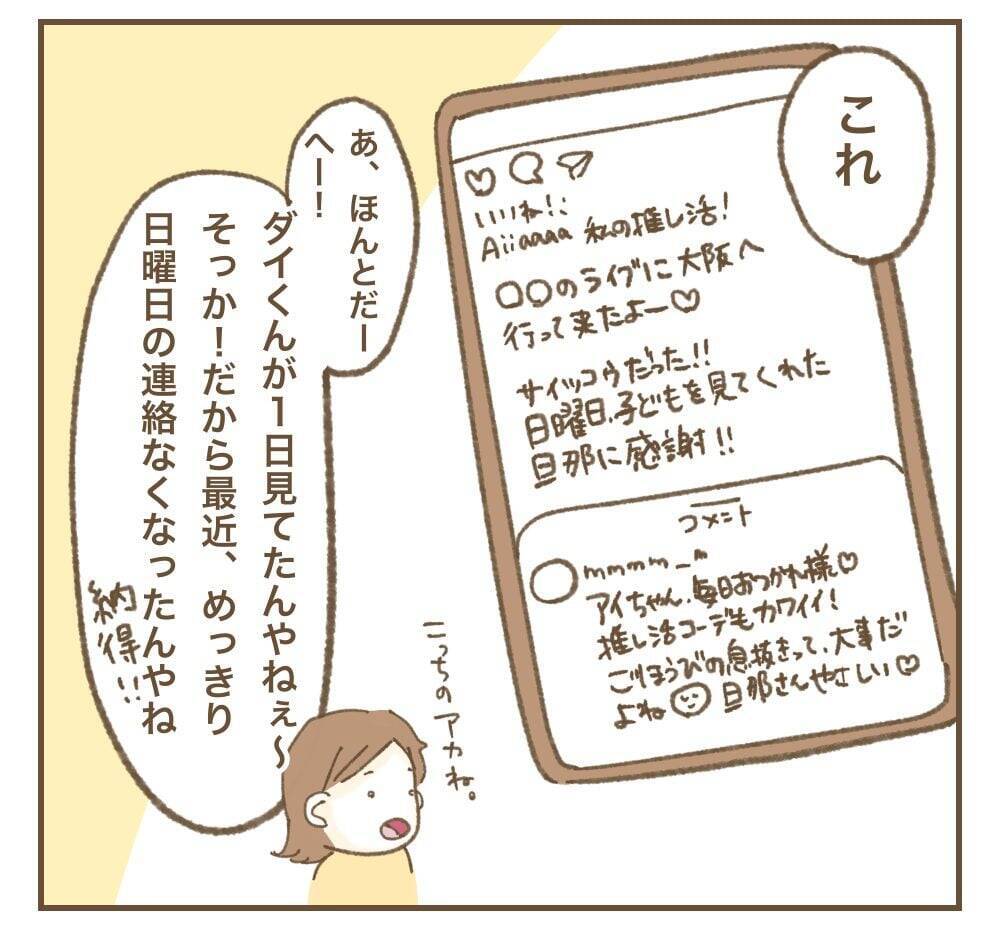 これ
いいね!:
Aiiaaaa 私の推し活!
○○のライブに大阪へ
行って来たよー♡
サイッコウだった!!
日曜日、子どもを見てくれた
旦那に感謝!!
コメント
mmmm_m
アイちゃん、毎日おつかれ様♡
推し活コーデもカワイイ!
ごほうびの息抜きって、大事だ
よね 旦那さんやさしい♡
あ、ほんとだー
へー!
ダイくんが1日見てたんやねぇ〜
そっか!だから最近、めっきり
日曜日の連絡なくなったんやね
納得!!
こっちのアカね。